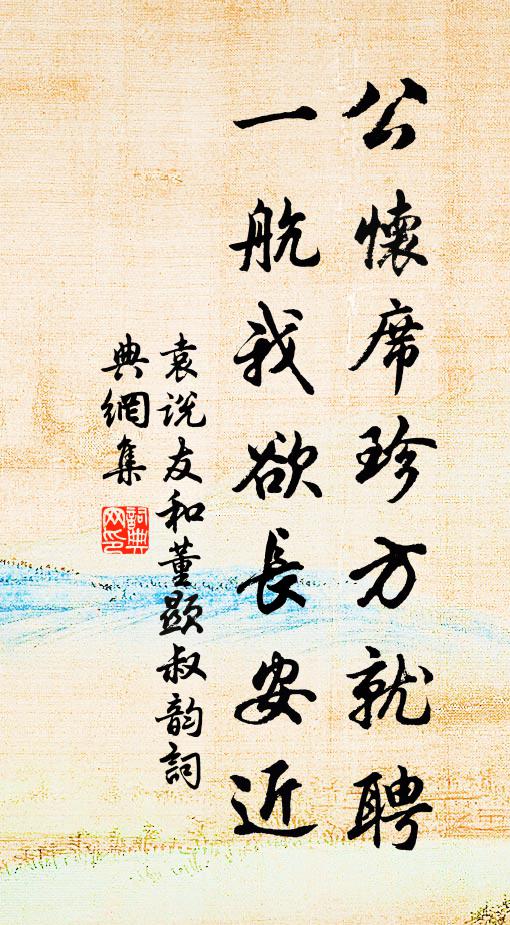 公懷席珍方就聘
一航我欲長安近
袁說友和董顯叔韵詞
典網集
詞典網印